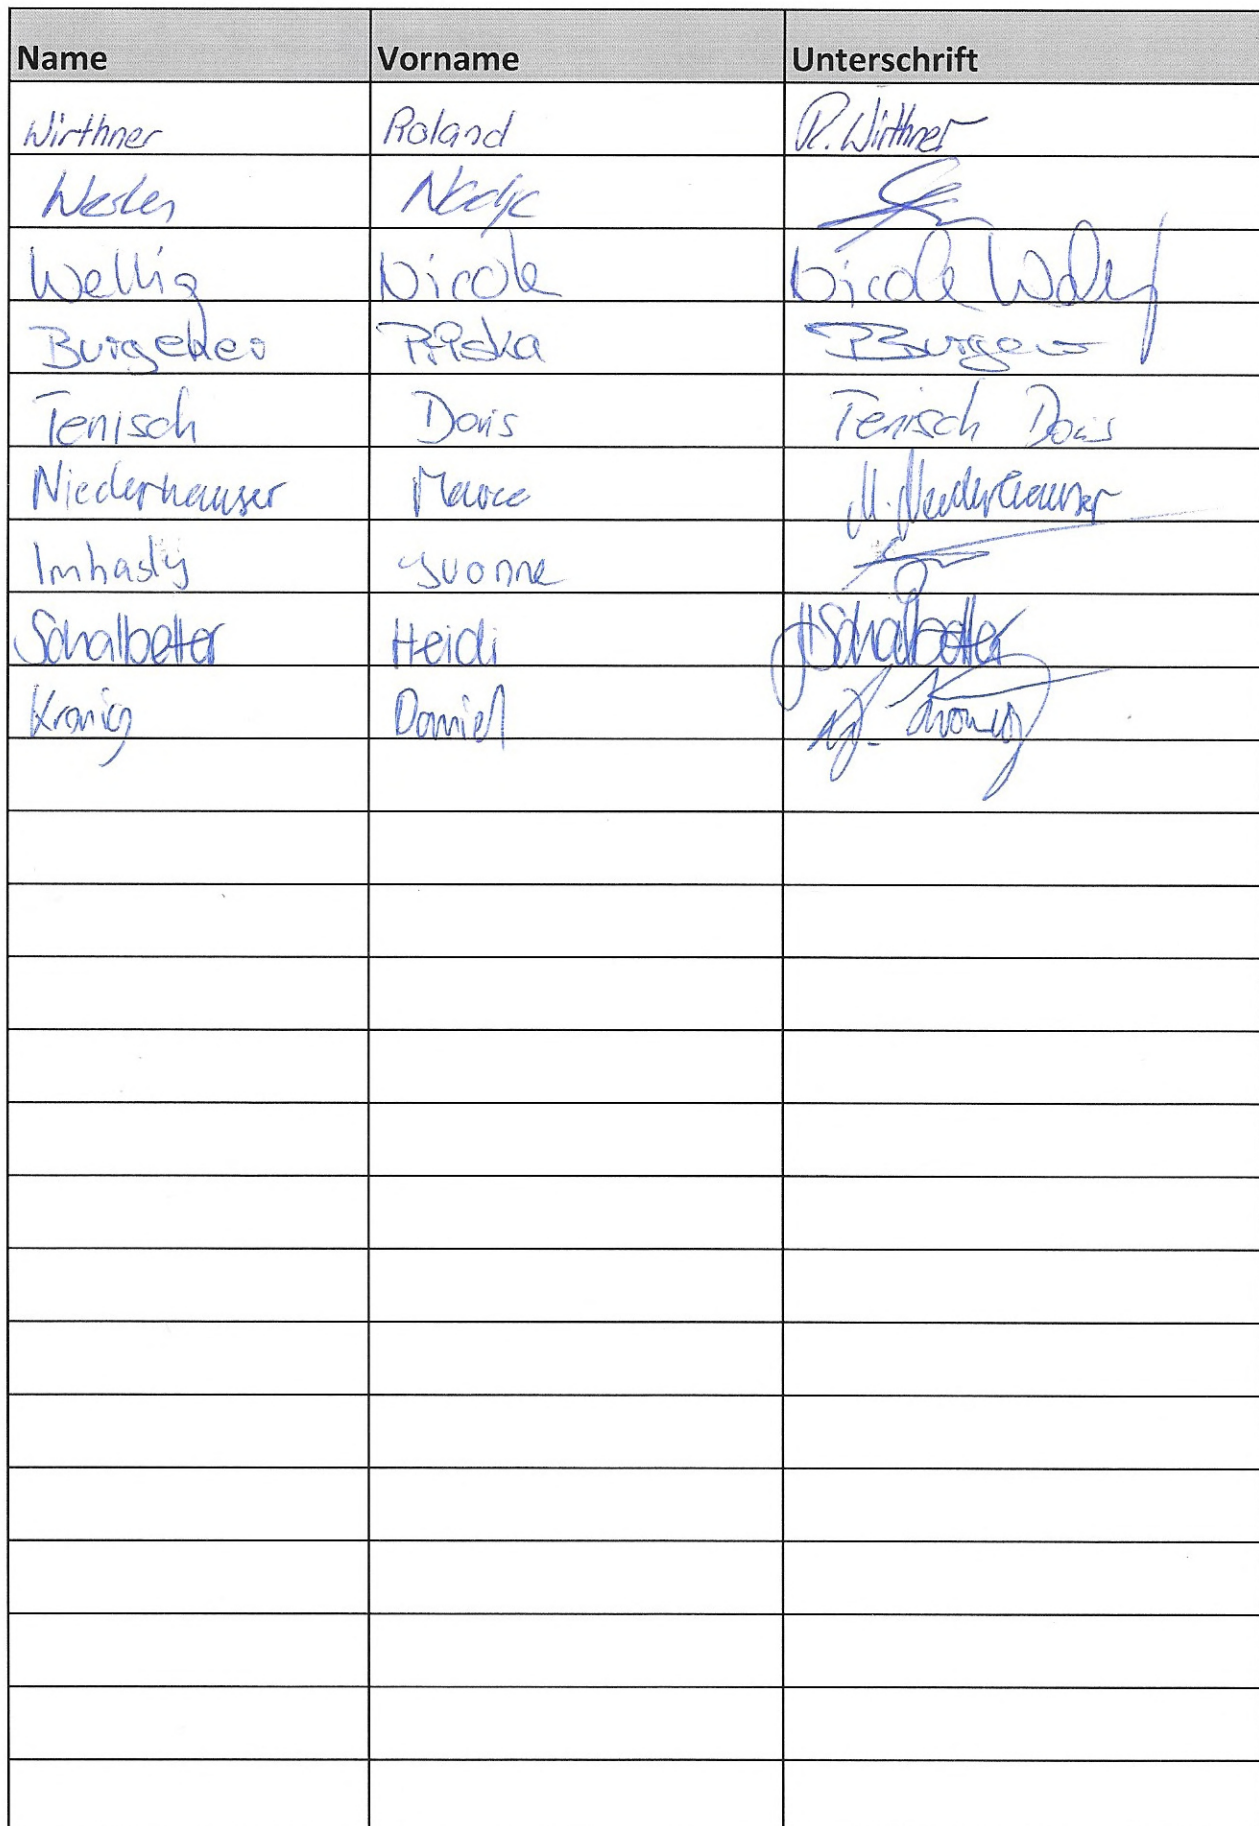 Name Vorname Unterschrift
Wirthner Roland R. Wirthner
Nadja
Wellig Nicole Nicole
Burgener Priska
Tenisch Doris Tenisch Doris
Niederhauser M. Niederhauser
Imhasly Yvonne
Schalbetter Heidi HSchalbetter
Kronig Daniel